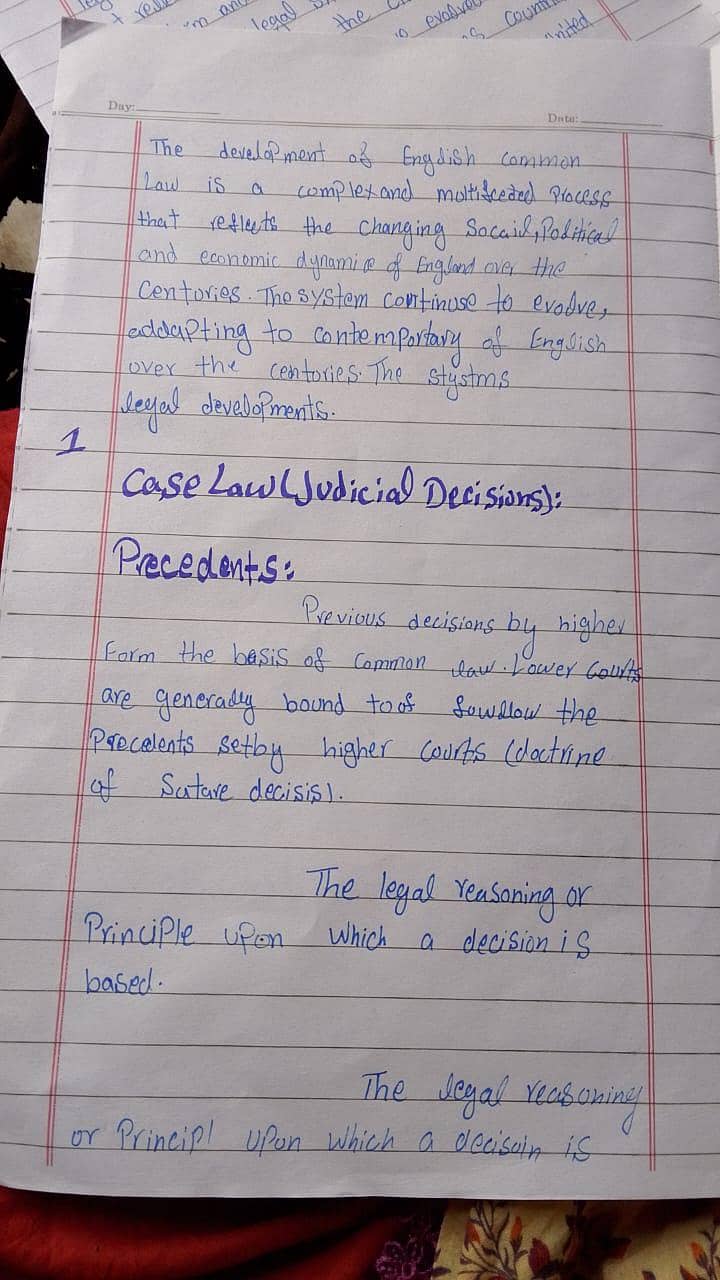 legal
the
evolved
Count
United
Day:
Date:
The development of English common
Law is a complex and multifceded Process
that reflects the changing Socail, Political
and economic dynamice of England over the
Centories. The system continuse to evolve,
addapting to contemportary of English
over the centories. The stystms
legal developments.
1
Case Law (Judicial Decisions):
Precedents:
Previous decisions by higher
Form the basis of Common law. Lower Courts
are generally bound to of fowllow the
Precelents setby higher courts (doctrine
of Sutare decisis).
The legal reasoning or
Principle upon which a decision is
based.
The legal reasoning
or Principl upon which a decisoin is